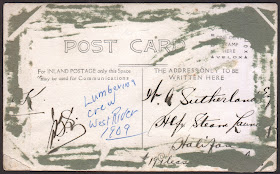 POST CARD
STAMP
HERE
For INLAND POSTAGE only this Space
may be used for Communications
THE ADDRESS ONLY TO BE
WRITTEN HERE
Lumbering
crew
West River
1909
Sutherland
Steam Laun
Halifax